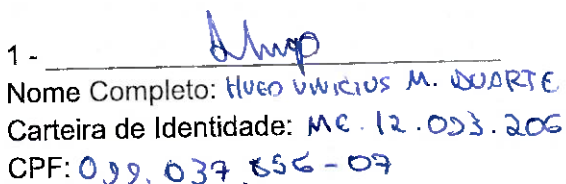 1 - Hugo
Nome Completo: HUGO VINICIUS M. DUARTE
Carteira de Identidade: MG.12.093.206
CPF: 099.037.656-07